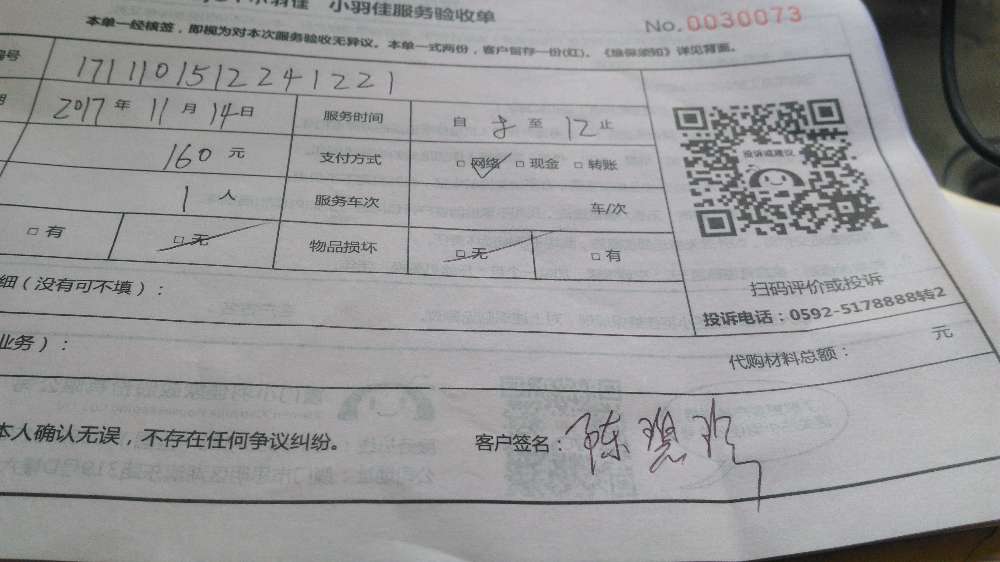 小羽佳服务验收单
No.0030073
本单一经核签，即视为对本次服务验收无异议。本单一式两份，客户留存一份(红)。《维保须知》详见背面。
编号 1711101512241221
2017年11月14日 服务时间 自 至12止
160元 支付方式 □网络 □现金 □转账
1人 服务车次 车/次
□有 □无 物品损坏 □无 □有
投诉或建议
扫码评价或投诉
投诉电话：0592-5178888转2
细(没有可不填)：
业务)： 代购材料总额： 元
本人确认无误，不存在任何争议纠纷。 客户签名：陈